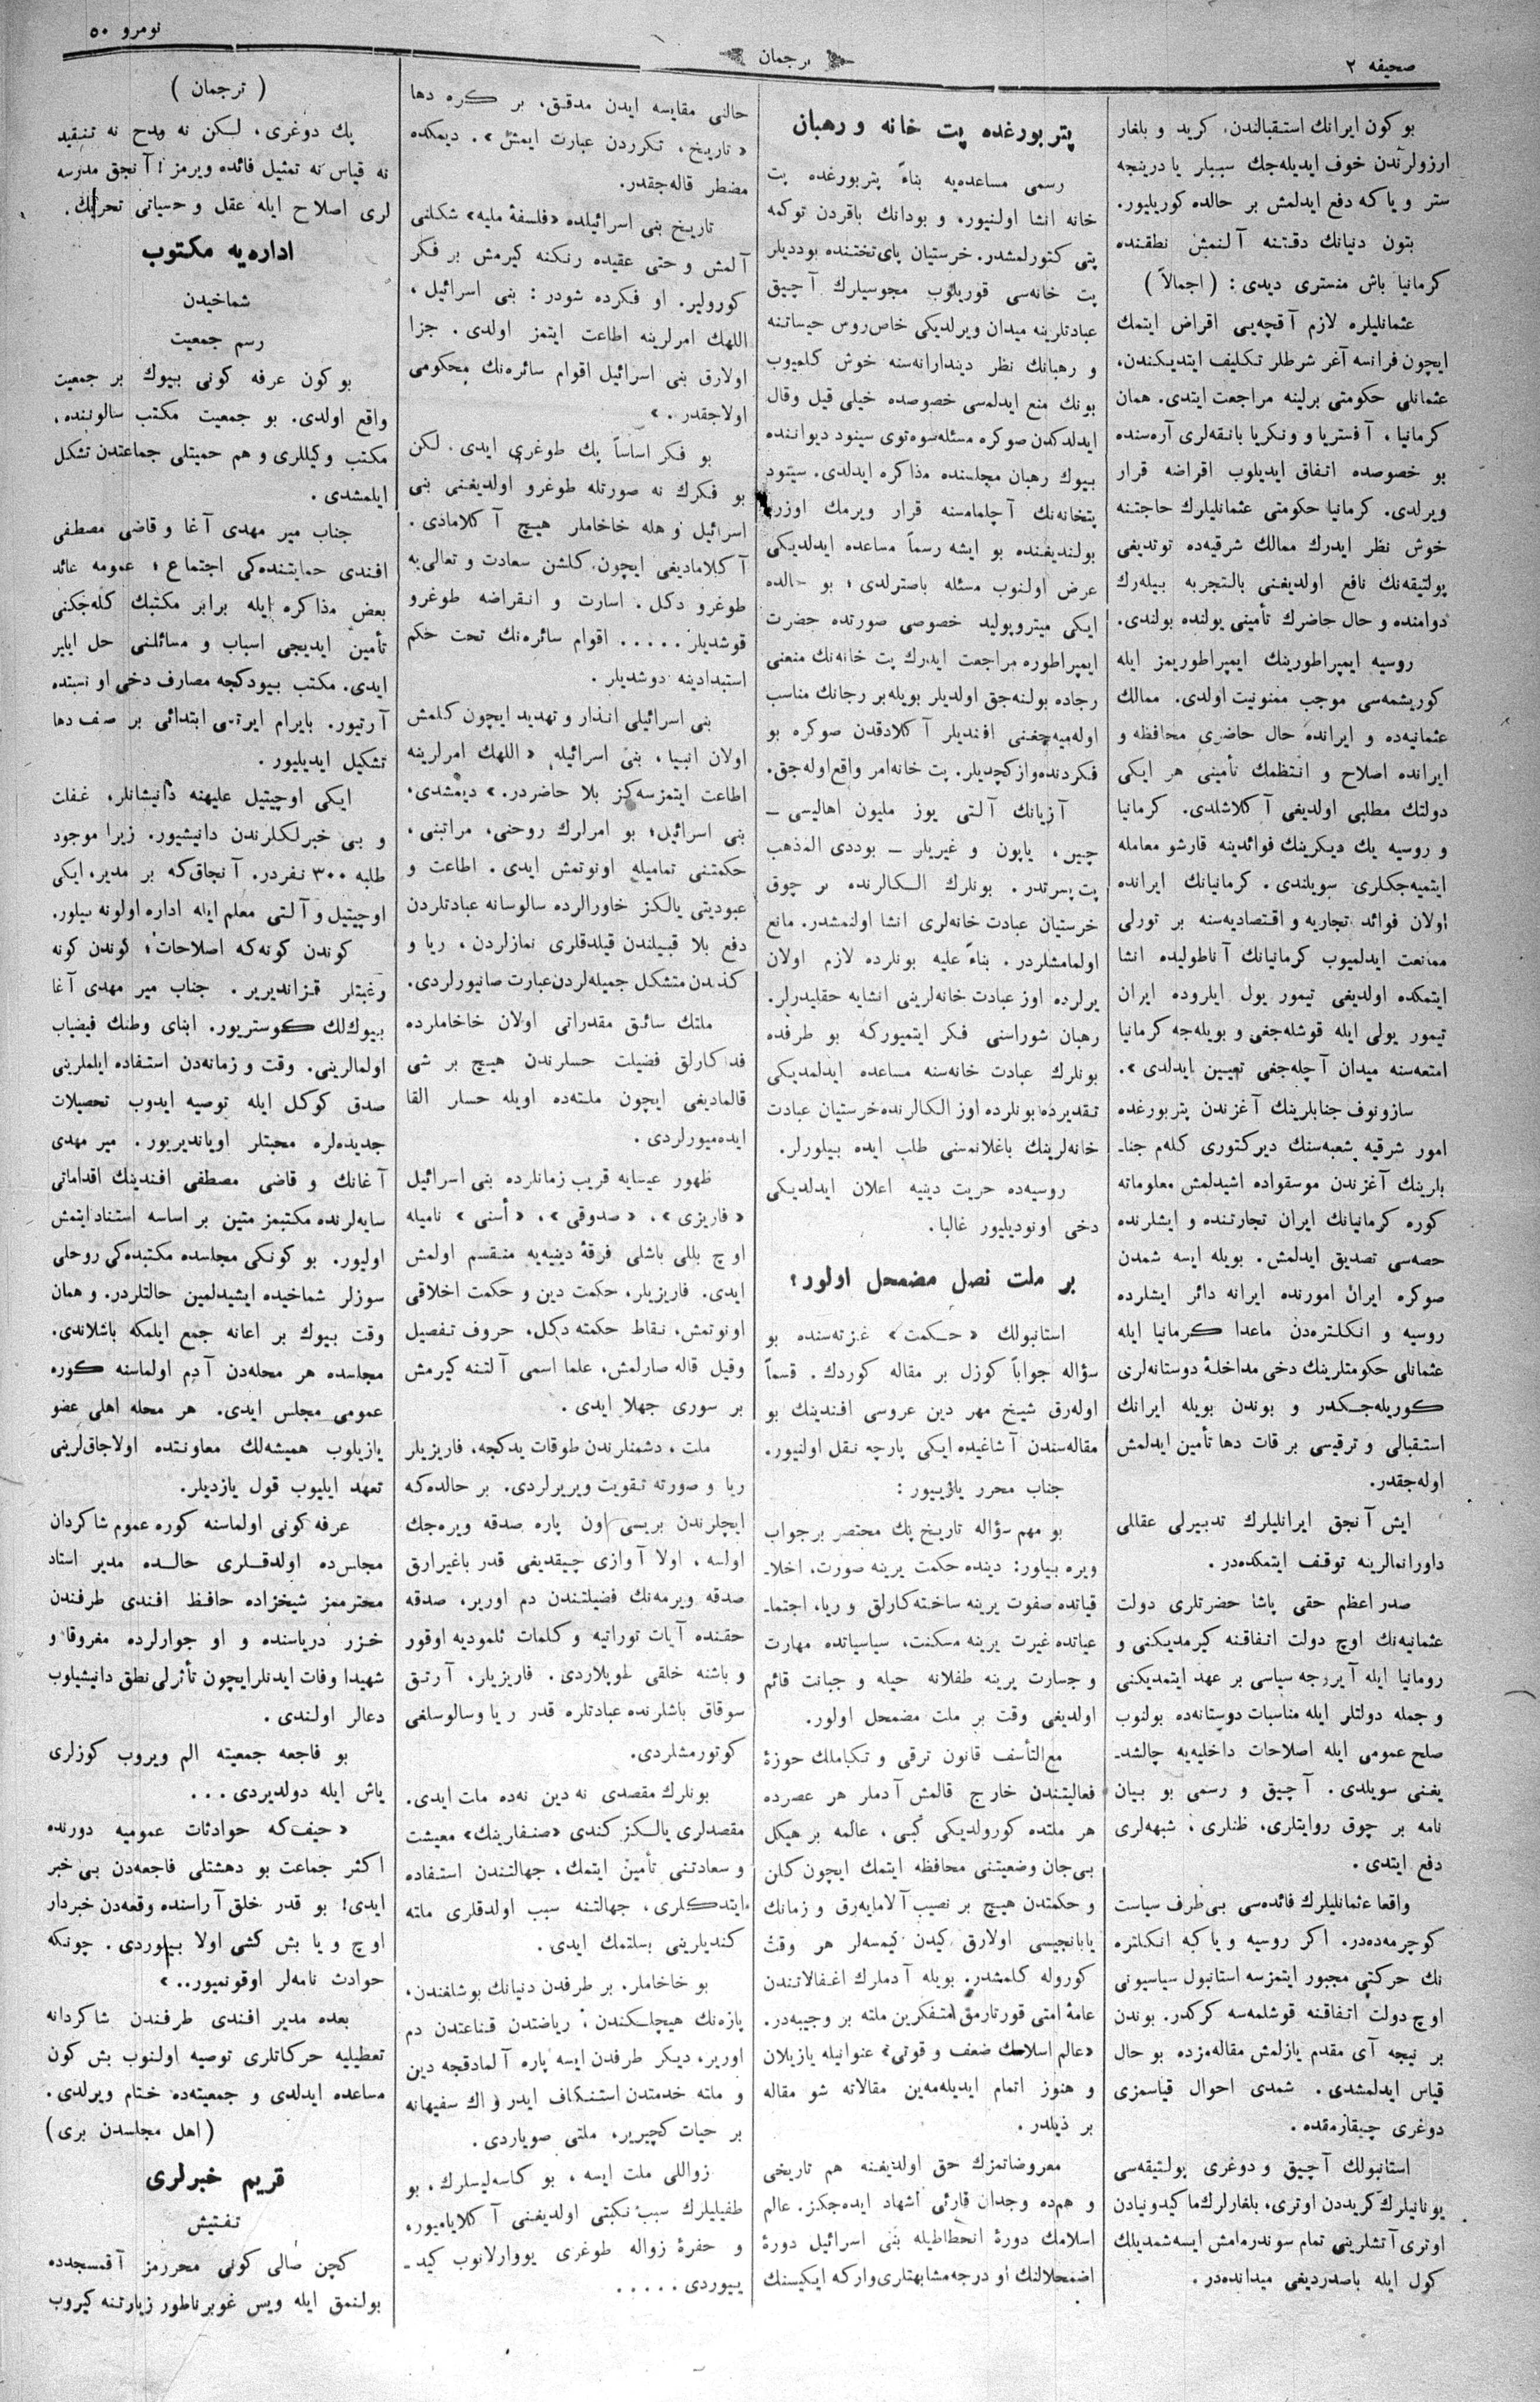 صحیفه ۲
ترجمان
نومرو ۵۰
بو کون ایرانك استقبالندن، کرید و بلغار
ارزولرندن خوف ایدیله‌جك سببلر یا درینجه
ستر و یا که دفع ایدلمش بر حالده کوریلیور.
بتون دنیانك دقتنه آلنمش نطقنده
کرمانیا باش منستری دیدی: (اجمالاً)
عثمانلیلره لازم آقچه‌یی اقراض ایتمك
ایچون فرانسه آغر شرطلر تکلیف ایتدیکندن،
عثمانلی حکومتی برلینه مراجعت ایتدی. همان
کرمانیا، آفستریا و ونکریا بانقه‌لری آره‌سنده
بو خصوصده اتفاق ایدیلوب اقراضه قرار
ویرلدی. کرمانیا حکومتی عثمانلیلرك حاجتنه
خوش نظر ایدرك ممالك شرقیه‌ده توتدیغی
پولتیقه‌نك نافع اولدیغنی بالتجربه بیله‌رك
دوامنده و حال حاضرك تأمینی یولنده بولندی.
روسیه ایمپراطورینك ایمپراطوریمز ایله
کوریشمه‌سی موجب ممنونیت اولدی. ممالك
عثمانیه‌ده و ایرانده حال حاضری محافظه و
ایرانده اصلاح و انتظمك تأمینی هر ایکی
دولتك مطلبی اولدیغی آکلاشلدی. کرمانیا
و روسیه یك دیکرینك فوائدینه قارشو معامله
ایتمیه‌جکلری سویلندی. کرمانیانك ایرانده
اولان فوائد تجاریه و اقتصادیه‌سنه بر تورلی
ممانعت ایدلمیوب کرمانیانك آناطولیده انشا
ایتمکده اولدیغی تیمور یول ایلروده ایران
تیمور یولی ایله قوشله‌جغی و بویله‌جه کرمانیا
امتعه‌سنه میدان آچله‌جغی تعیین ایدلدی».
سازونوف جنابلرینك آغزندن پتربورغده
امور شرقیه شعبه‌سنك دیرکتوری کلهم جنا‌ـ
بلرینك آغزندن موسقواده اشیدلمش معلوماته
کوره کرمانیانك ایران تجارتنده و ایشلرنده
حصه‌سی تصدیق ایدلمش. بویله ایسه شمدن
صوکره ایران امورنده ایرانه دائر ایشلرده
روسیه و انکلتره‌دن ماعدا کرمانیا ایله
عثمانلی حکومتلرینك دخی مداخلهٔ دوستانه‌لری
کوریله‌جکدر و بوندن بویله ایرانك
استقبالی و ترقیسی بر قات دها تأمین ایدلمش
اوله‌جقدر.
ایش آنجق ایرانلیلرك تدبیرلی عقللی
داورانمالرینه توقف ایتمکده‌در.
صدر اعظم حقی پاشا حضرتلری دولت
عثمانیه‌نك اوچ دولت اتفاقنه کیرمدیکنی و
رومانیا ایله آیروجه سیاسی بر عهد ایتمدیکنی
و جمله دولتلر ایله مناسبات دوستانه‌ده بولنوب
صلح عمومی ایله اصلاحات داخلیه‌یه چالشد‌ـ
یغنی سویلدی. آچیق و رسمی بو بیان
نامه بر چوق روایتلری، ظنلری، شبهه‌لری
دفع ایتدی.
واقعا عثمانلیلرك فائده‌سی بی‌طرف سیاست
کوجرمه‌ده‌در. اکر روسیه و یا که انکلتره
نك حرکتی مجبور ایتمزسه استانبول سیاسیونی
اوچ دولت اتفاقنه قوشلمه‌سه کرکدر. بوندن
بر نیچه آی مقدم یازلمش مقاله‌مزده بو حال
قیاس ایدلمشدی. شمدی احوال قیاسمزی
دوغری چیقارمقده.
استانبولك آچیق و دوغری پولتیقه‌سی
یونانیلرك کریددن اوتری، بلغارلرك ماکیدونیادن
اوتری آتشلرینی تمام سوندرمامش ایسه شمدیلك
کول ایله باصدردیغی میدانده‌در.
پتربورغده پت خانه و رهبان
رسمی مساعده‌یه بناءً پتربورغده پت
خانه انشا اولنیور، و بودانك باقردن توکمه
پتی کتورلمشدر. خرستیان پای‌تختنده بوددیلر
پت خانه‌سی قوریلوب مجوسیلرك آچیق
عبادتلرینه میدان ویرلدیکی خاص روس حیساتنه
و رهبانك نظر دیندارانه‌سنه خوش کلمیوب
بونك منع ایدلمسی خصوصده خیلی قیل وقال
ایدلدکدن صوکره مسئله سوه‌توی سینود دیواننده
بیوك رهبان مجلسنده مذاکره ایدلدی. سینود
پتخانه‌نك آچلمامسنه قرار ویرمك اوزره
بولندیغنده بو ایشه رسماً مساعده ایدلدیکی
عرض اولنوب مسئله باصترلدی؛ بو حالده
ایکی میتروپولید خصوصی صورتده حضرت
ایمپراطوره مراجعت ایدرك پت خانه‌نك منعنی
رجاده بولنه‌جق اولدیلر بویله بر رجانك مناسب
اوله‌میه‌جغنی افندیلر آکلادقدن صوکره بو
فکردنده وازکچدیلر. پت خانه امر واقع اوله‌جق.
آزیانك آلتی یوز ملیون اهالیسی ــ
چین، یاپون و غیریلر ــ بوددی المذهب
پت پرستدر. بونلرك الکالرنده بر چوق
خرستیان عبادت خانه‌لری انشا اولنمشدر. مانع
اولمامشلردر. بناءً علیه بونلرده لازم اولان
یرلرده اوز عبادت خانه‌لرینی انشایه حقلیدرلر.
رهبان شوراسنی فکر ایتمیورکه بو طرفده
بونلرك عبادت خانه‌سنه مساعده ایدلمدیکی
تقدیرده بونلرده اوز الکالرنده خرستیان عبادت
خانه‌لرینك باغلانمه‌سنی طلب ایده بیلورلر.
روسیه‌ده حریت دینیه اعلان ایدلدیکی
دخی اونودیلیور غالبا.
بر ملت نصل مضمحل اولور؟
استانبولك «حکمت» غزته‌سنده بو
سؤاله جواباً کوزل بر مقاله کوردك. قسماً
اوله‌رق شیخ مهر دین عروسی افندینك بو
مقاله‌سندن آشاغیده ایکی پارچه نقل اولنیور.
جناب محرر یازییور:
بو مهم سؤاله تاریخ پك مختصر بر جواب
ویره بیلور: دینده حکمت یرینه صورت، اخلا‌ـ
قیاتده صفوت یرینه ساخته‌کارلق و ریا، اجتما‌ـ
عیاتده غیرت یرینه مسکنت، سیاسیاتده مهارت
و جسارت یرینه طفلانه حیله و جبانت قائم
اولدیغی وقت بر ملت مضمحل اولور.
مع‌التأسف قانون ترقی و تکاملك حوزهٔ
فعالیتندن خارج قالمش آدملر هر عصرده
هر ملتده کورولدیکی کبی، عالمه بر هیکل
بی‌جان وضعیتنی محافظه ایتمك ایچون کلن
و حکمتدن هیچ بر نصیب آلامایه‌رق و زمانك
یابانجیسی اولارق کیدن کیمسه‌لر هر وقت
کوروله کلمشدر. بویله آدملرك اغفالاتندن
عامهٔ امتی قورتارمق متفکرین ملته بر وجیبه‌در.
«عالم اسلامك ضعف و قوتی» عنوانیله یازیلان
و هنوز اتمام ایدیله‌مه‌ین مقالاته شو مقاله
بر ذیلدر.
معروضاتمزك حق اولدیغنه هم تاریخی
و هم‌ده وجدان قارئی اشهاد ایده‌جکز. عالم
اسلامك دورهٔ انحطاطیله بنی اسرائیل دورهٔ
اضمحلالنك او درجه مشابهتلری وارکه ایکیسنك
حالنی مقایسه ایدن مدقق، بر کره دها
«تاریخ، تکرردن عبارت ایمش». دیمکده
مضطر قاله‌جقدر.
تاریخ بنی اسرائیلده «فلسفهٔ ملیه» شکلنی
آلمش و حتی عقیده رنکنه کیرمش بر فکر
کورولیر. او فکرده شودر: بنی اسرائیل،
اللهك امرلرینه اطاعت ایتمز اولدی. جزا
اولارق بنی اسرائیل اقوام سائره‌نك محکومی
اولاجقدر.»
بو فکر اساساً پك طوغری ایدی. لکن
بو فکرك نه صورتله طوغرو اولدیغنی بنی
اسرائیل و هله خاخاملر هیچ آکلامادی.
آکلامادیغی ایچون، کلشن سعادت و تعالی‌یه
طوغرو دکل. اسارت و انقراضه طوغرو
قوشدیلر ..... اقوام سائره‌نك تحت حکم
استبدادینه دوشدیلر.
بنی اسرائیلی انذار و تهدید ایچون کلمش
اولان انبیا، بنی اسرائیله «اللهك امرلرینه
اطاعت ایتمزسه‌کز بلا حاضردر.» دیمشدی.
بنی اسرائیل؛ بو امرلرك روحنی، مراتبنی،
حکمتنی تمامیله اونوتمش ایدی. اطاعت و
عبودیتی یالکز خاورالرده سالوسانه عبادتلردن
دفع بلا قبیلندن قیلدقلری نمازلردن، ریا و
کذبدن متشکل جمیله‌لردن عبارت صانیورلردی.
ملتك سائق مقدراتی اولان خاخاملرده
فداکارلق فضیلت حسلرندن هیچ بر شی
قالمادیغی ایچون ملتده اویله حسلر القا
ایده‌میورلردی.
ظهور عیسایه قریب زمانلرده بنی اسرائیل
«فاریزی»، «صدوقی»، «أسنی» نامیله
اوچ بللی باشلی فرقهٔ دینیه‌یه منقسم اولمش
ایدی. فاریزیلر، حکمت دین و حکمت اخلاقی
اونوتمش، نقاط حکمته دکل، حروف تفصیل
وقیل قاله صارلمش، علما اسمی آلتنه کیرمش
بر سوری جهلا ایدی.
ملت، دشمنلرندن طوقات یدکجه، فاریزیلر
ریا و صورته تقویت ویریرلردی. بر حالده‌که
ایچلرندن بریسی اون پاره صدقه ویره‌جك
اولسه، اولا آوازی چیقدیغی قدر باغیرارق
صدقه ویرمه‌نك فضیلتندن دم اوریر، صدقه
حقنده آیات توراتیه و کلمات تلمودیه اوقور
و باشنه خلقی طوپلاردی. فاریزیلر، آرتق
سوقاق باشلرنده عبادتلره قدر ریا وسالوسلغی
کوتورمشلردی.
بونلرك مقصدی نه دین نه‌ده ملت ایدی.
مقصدلری یالکز کندی «صنفارینك» معیشت
و سعادتنی تأمین ایتمك، جهالتندن استفاده
ایتدکلری، جهالتنه سبب اولدقلری ملته
کندیلرینی بسلتمك ایدی.
بو خاخاملر. بر طرفدن دنیانك بوشلغندن،
پاره‌نك هیچلکندن؛ ریاضتدن قناعتدن دم
اوریر، دیکر طرفدن ایسه پاره آلمادقجه دین
و ملته خدمتدن استنکاف ایدر و اك سفیهانه
بر حیات کچیریر، ملتی صویاردی.
زواللی ملت ایسه، بو کاسه‌لیسلرك، بو
طفیلیلرك سبب نکبتی اولدیغنی آکلایامیور،
و حفرهٔ زواله طوغری یووارلانوب کید‌ـ
یییوردی .....
(ترجمان)
پك دوغری، لکن نه مدح نه تنقید
نه قیاس نه تمثیل فائده ویرمز! آنجق مدرسه
لری اصلاح ایله عقل و حسیاتی تحریك.
اداره‌یه مکتوب
شماخیدن
رسم جمعیت
بو کون عرفه کونی بیوك بر جمعیت
واقع اولدی. بو جمعیت مکتب سالوننده،
مکتب وکیللری و هم حمیتلی جماعتدن تشکل
ایلمشدی.
جناب میر مهدی آغا و قاضی مصطفی
افندی حمایتنده‌کی اجتماع؛ عمومه عائد
بعض مذاکره ایله برابر مکتبك کله‌جکنی
تأمین ایدیجی اسباب و مسائلنی حل ایلیر
ایدی. مکتب بیودکجه مصارف دخی او نسبتده
آرتیور. بایرام ایرتسی ابتدائی بر صف دها
تشکیل ایدیلیور.
ایکی اوچیتیل علیهنه دانیشانلر، غفلت
و بی خبرلکلرندن دانیشیور. زیرا موجود
طلبه ۳۰۰ نفردر. آنجاق‌که بر مدیر، ایکی
اوچیتیل و آلتی معلم ایله اداره اولونه بیلور.
کوندن کونه‌که اصلاحات؛ کوندن کونه
رغبتلر قزاندیریر. جناب میر مهدی آغا
بیوك‌لك کوستریور. ابنای وطنك فیضیاب
اولمالرینی. وقت و زمانه‌دن استفاده ایلملرینی
صدق کوکل ایله توصیه ایدوب تحصیلات
جدیده‌لره محبتلر اویاندیریور. میر مهدی
آغانك و قاضی مصطفی افندینك اقداماتی
سایه‌لرنده مکتبمز متین بر اساسه استناد ایتمش
اولیور. بو کونکی مجلسده مکتبده‌کی روحلی
سوزلر شماخیده ایشیدلمین حالتلردر. و همان
وقت بیوك بر اعانه جمع ایلمکه باشلاندی.
مجلسده هر محله‌دن آدم اولماسنه کوره
عمومی مجلس ایدی. هر محله اهلی عضو
یازیلوب همیشه‌لك معاونتده اولاجاق‌لرینی
تعهد ایلیوب قول یازدیلر.
عرفه کونی اولماسنه کوره عموم شاکردان
مجلس‌ده اولدقلری حالده مدیر استاد
محترممز شیخزاده حافظ افندی طرفندن
خزر دریاسنده و او جوارلرده مغروقا و
شهیدا وفات ایدنلر ایچون تأثرلی نطق دانیشیلوب
دعالر اولندی.
بو فاجعه جمعیته الم ویروب کوزلری
یاش ایله دولدیردی ...
«حیف‌که حوادثات عمومیه دورنده
اکثر جماعت بو دهشتلی فاجعه‌دن بی خبر
ایدی! بو قدر خلق آراسنده وقعه‌دن خبردار
اوچ و یا بش کشی اولا بیلوردی. چونکه
حوادث نامه‌لر اوقونمیور..»
بعده مدیر افندی طرفندن شاکردانه
تعطیلیه حرکاتلری توصیه اولنوب بش کون
مساعده ایدلدی و جمعیته‌ده ختام ویرلدی.
(اهل مجلسدن بری)
قریم خبرلری
تفتیش
کچن صالی کونی محررمز آقمسجدده
بولنمق ایله ویس غوبرناطور زیارتنه کیروب